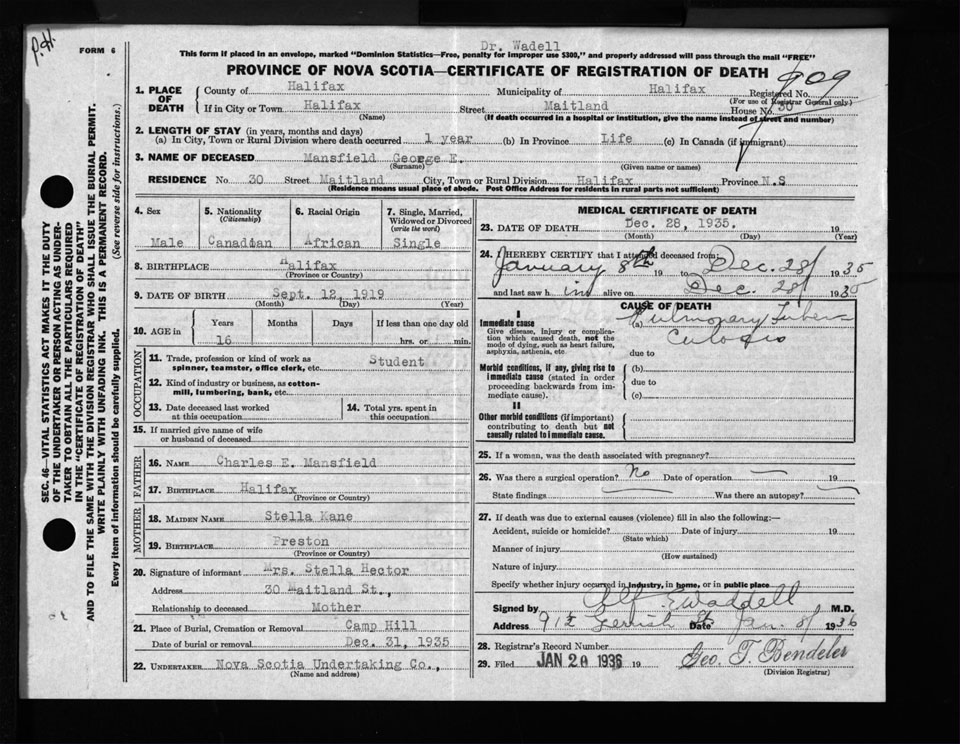 P.H.
FORM 6
Dr. Wadell
This form if placed in an envelope, marked "Dominion Statistics—Free, penalty for improper use $300," and properly addressed will pass through the mail "FREE"
PROVINCE OF NOVA SCOTIA—CERTIFICATE OF REGISTRATION OF DEATH
909
1. PLACE OF DEATH
County of Halifax Municipality of Halifax Registered No.
(For use of Registrar General only)
If in City or Town Halifax Street Maitland House No. 30
(Name) (If death occurred in a hospital or institution, give the name instead of street and number)
2. LENGTH OF STAY (in years, months and days)
(a) In City, Town or Rural Division where death occurred 1 year (b) In Province Life (c) In Canada (if immigrant)
3. NAME OF DECEASED Mansfield George E.
(Surname) (Given name or names)
RESIDENCE No. 30 Street Maitland City, Town or Rural Division Halifax Province N.S
(Residence means usual place of abode. Post Office Address for residents in rural parts not sufficient)
4. Sex Male
5. Nationality (Citizenship) Canadian
6. Racial Origin African
7. Single, Married, Widowed or Divorced (write the word) Single
8. BIRTHPLACE Halifax
(Province or Country)
9. DATE OF BIRTH Sept. 12, 1919
(Month) (Day) (Year)
10. AGE in Years Months Days If less than one day old
16 hrs. or min.
OCCUPATION
11. Trade, profession or kind of work as spinner, teamster, office clerk, etc. Student
12. Kind of industry or business, as cotton-mill, lumbering, bank, etc.
13. Date deceased last worked at this occupation
14. Total yrs. spent in this occupation
15. If married give name of wife or husband of deceased
FATHER
16. NAME Charles E. Mansfield
17. BIRTHPLACE Halifax
(Province or Country)
MOTHER
18. MAIDEN NAME Stella Kane
19. BIRTHPLACE Preston
(Province or Country)
20. Signature of informant Mrs. Stella Hector
Address 30 Maitland St.,
Relationship to deceased Mother
21. Place of Burial, Cremation or Removal Camp Hill
Date of burial or removal Dec. 31, 1935
22. UNDERTAKER Nova Scotia Undertaking Co.,
(Name and address)
MEDICAL CERTIFICATE OF DEATH
23. DATE OF DEATH Dec. 28, 1935. 19
(Month) (Day) (Year)
24. I HEREBY CERTIFY that I attended deceased from:
January 8th 19 to Dec. 28/ 1935
and last saw him alive on Dec. 28/ 1935
CAUSE OF DEATH
I
Immediate cause
Give disease, injury or complication which caused death, not the mode of dying, such as heart failure, asphyxia, asthenia, etc.
(a) Pulmonary Tuberculosis
due to
Morbid conditions, if any, giving rise to immediate cause (stated in order proceeding backwards from immediate cause)
(b)
due to
(c)
II
Other morbid conditions (if important) contributing to death but not causally related to immediate cause.
25. If a women, was the death associated with pregnancy?
26. Was there a surgical operation? No Date of operation 19
State findings Was there an autopsy?
27. If death was due to external causes (violence) fill in also the following:—
Accident, suicide or homicide? Date of injury 19
(State which)
Manner of injury
(How sustained)
Nature of injury
Specify whether injury occurred in industry, in home, or in public place
Signed by Waddell M.D.
Address 91 1/2 Gerrish St Date Jan. 8/ 1936
28. Registrar's Record Number
29. Filed JAN 20 1936 19 Geo. T. Bendeler
(Division Registrar)
SEC. 46—VITAL STATISTICS ACT MAKES IT THE DUTY
OF THE UNDERTAKER OR PERSON ACTING AS UNDER-
TAKER TO OBTAIN ALL THE PARTICULARS REQUIRED
IN THE "CERTIFICATE OF REGISTRATION OF DEATH"
AND TO FILE THE SAME WITH THE DIVISION REGISTRAR WHO SHALL ISSUE THE BURIAL PERMIT.
WRITE PLAINLY WITH UNFADING INK. THIS IS A PERMANENT RECORD.
Every item of information should be carefully supplied. (See reverse side for instructions.)